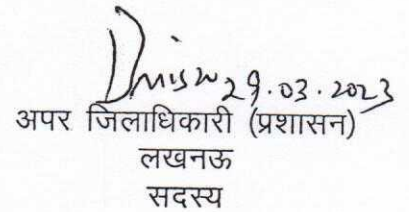 29.03.2023
अपर जिलाधिकारी (प्रशासन)
लखनऊ
सदस्य